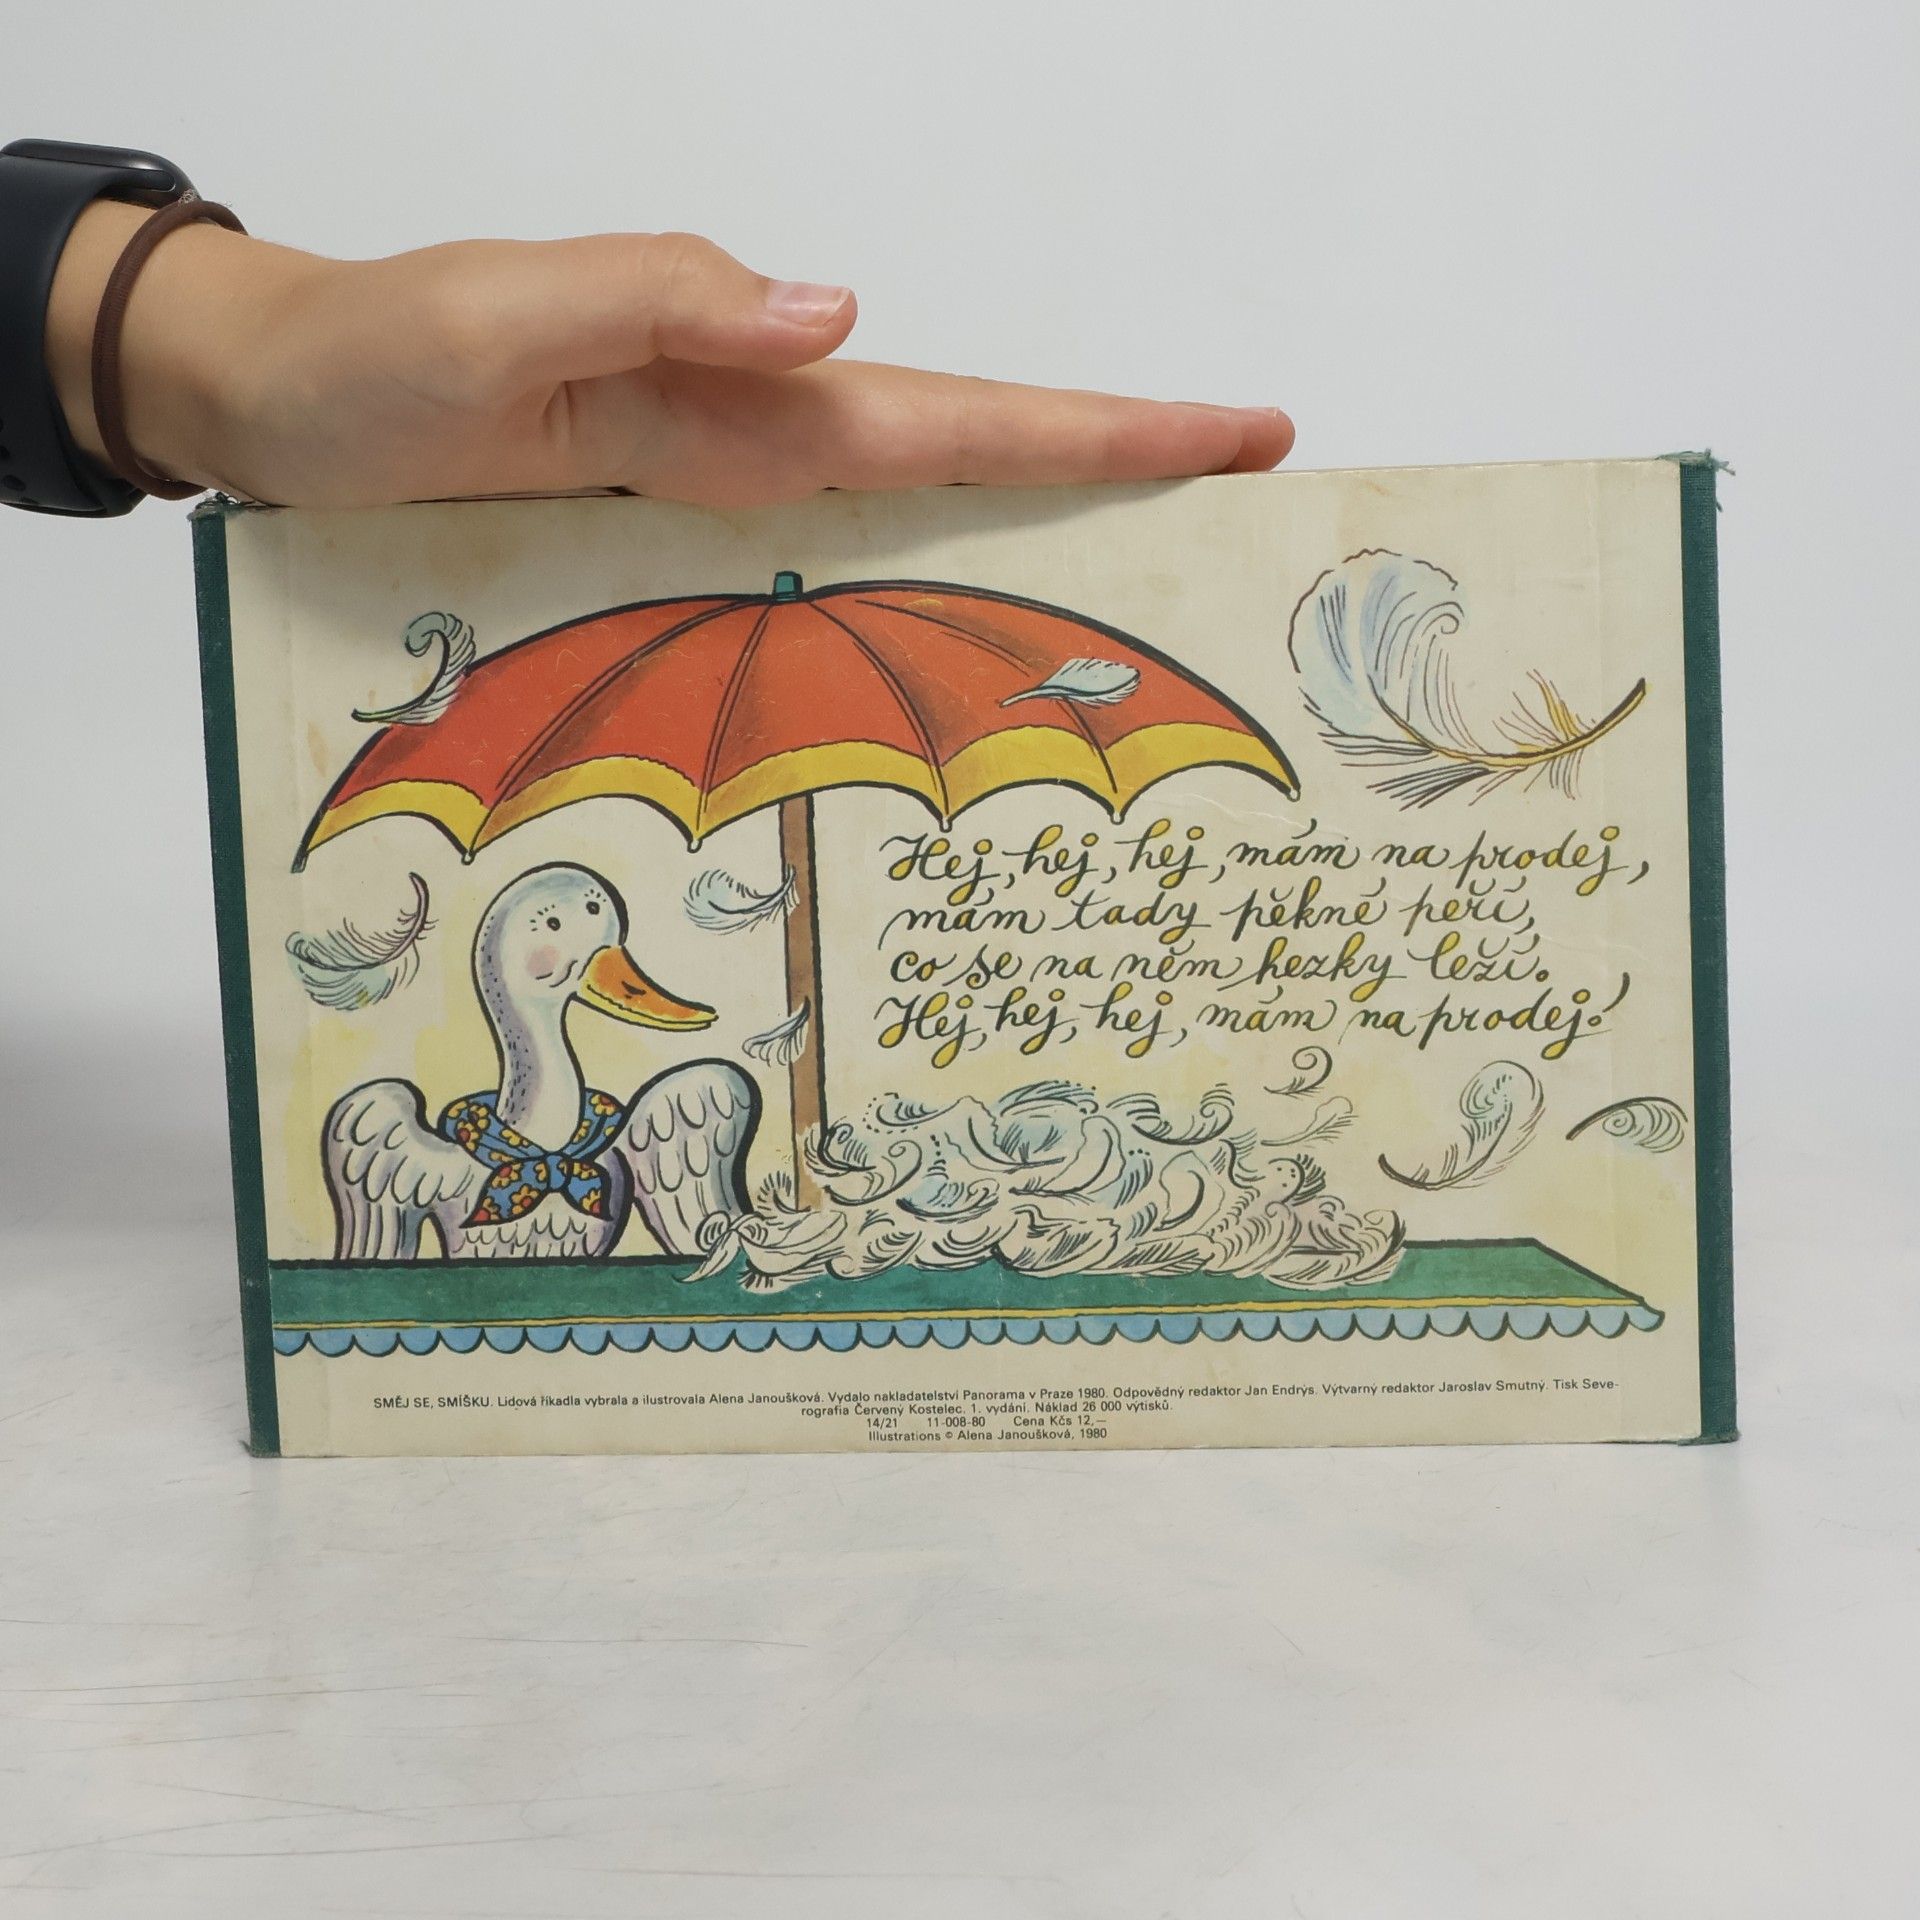 Hej, hej, hej, mám na prodej,
mám tady pěkné peří,
co se na něm hezky leží.
Hej, hej, hej, mám na prodej!
SMĚJ SE, SMÍŠKU. Lidová říkadla vybrala a ilustrovala Alena Janoušková. Vydalo nakladatelství Panorama v Praze 1980. Odpovědný redaktor Jan Endrýs. Výtvarný redaktor Jaroslav Smutný. Tisk Seve-
rografia Červený Kostelec. 1. vydání. Náklad 26 000 výtisků.
14/21 11-008-80 Cena Kčs 12,—
Illustrations © Alena Janoušková, 1980